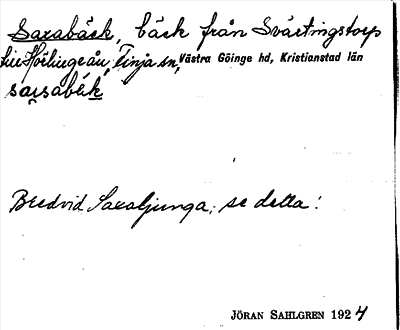 Saxabäck, bäck från Svärtingstorp
till Hörlingeån, Finja sn, Västra Göinge hd, Kristianstad län
saɽsabɛ́k
Bredvid Saxaljunga; se detta!
JÖRAN SAHLGREN 1924